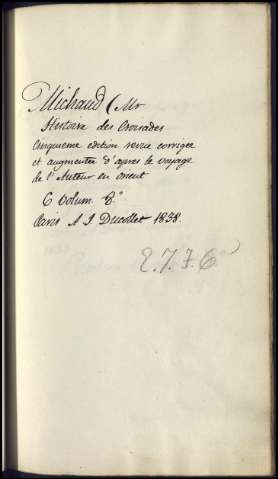 Michaud (Mr
Histoire des Croisades
Cinquieme edition revue corrigée
et augmentée d'apres le voyage
de l'Auteur en orient
6 Volum 8°
Paris A J Ducollet 1838.
E.7.F.6°